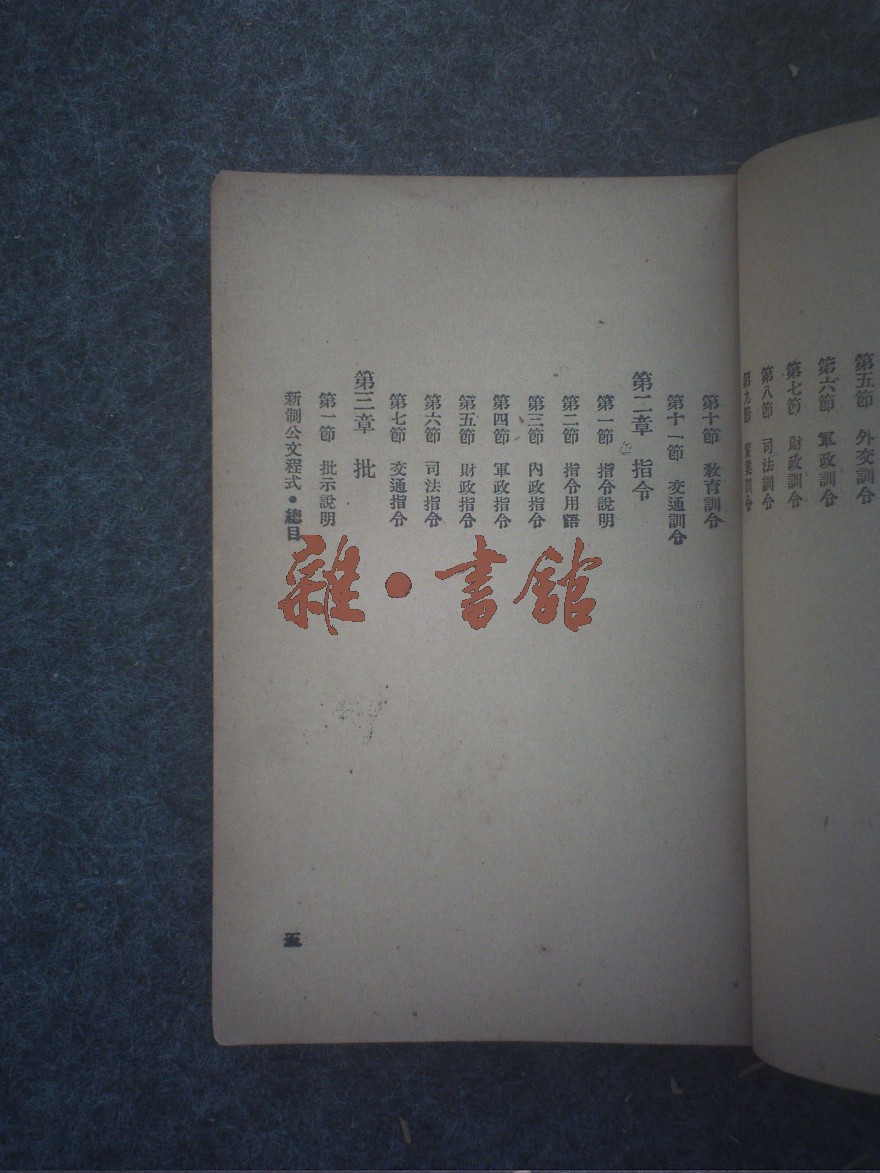 第五節 外交訓令
第六節 軍政訓令
第七節 財政訓令
第八節 司法訓令
第九節 實業訓令
第十節 教育訓令
第十一節 交通訓令
第二章 指令
第一節 指令說明
第二節 指令用語
第三節 內政指令
第四節 軍政指令
第五節 財政指令
第六節 司法指令
第七節 交通指令
第三章 批
第一節 批示說明
新制公文程式•總目
五
雜•書館